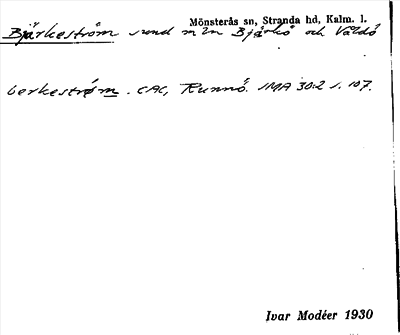 Mönsterås sn, Stranda hd, Kalm. l.
Bjärkeström sund m ln Bjärkö och Väldö
berkestrøm. CAC, Runnö. IMA 30:2 s. 107.
Ivar Modéer 1930